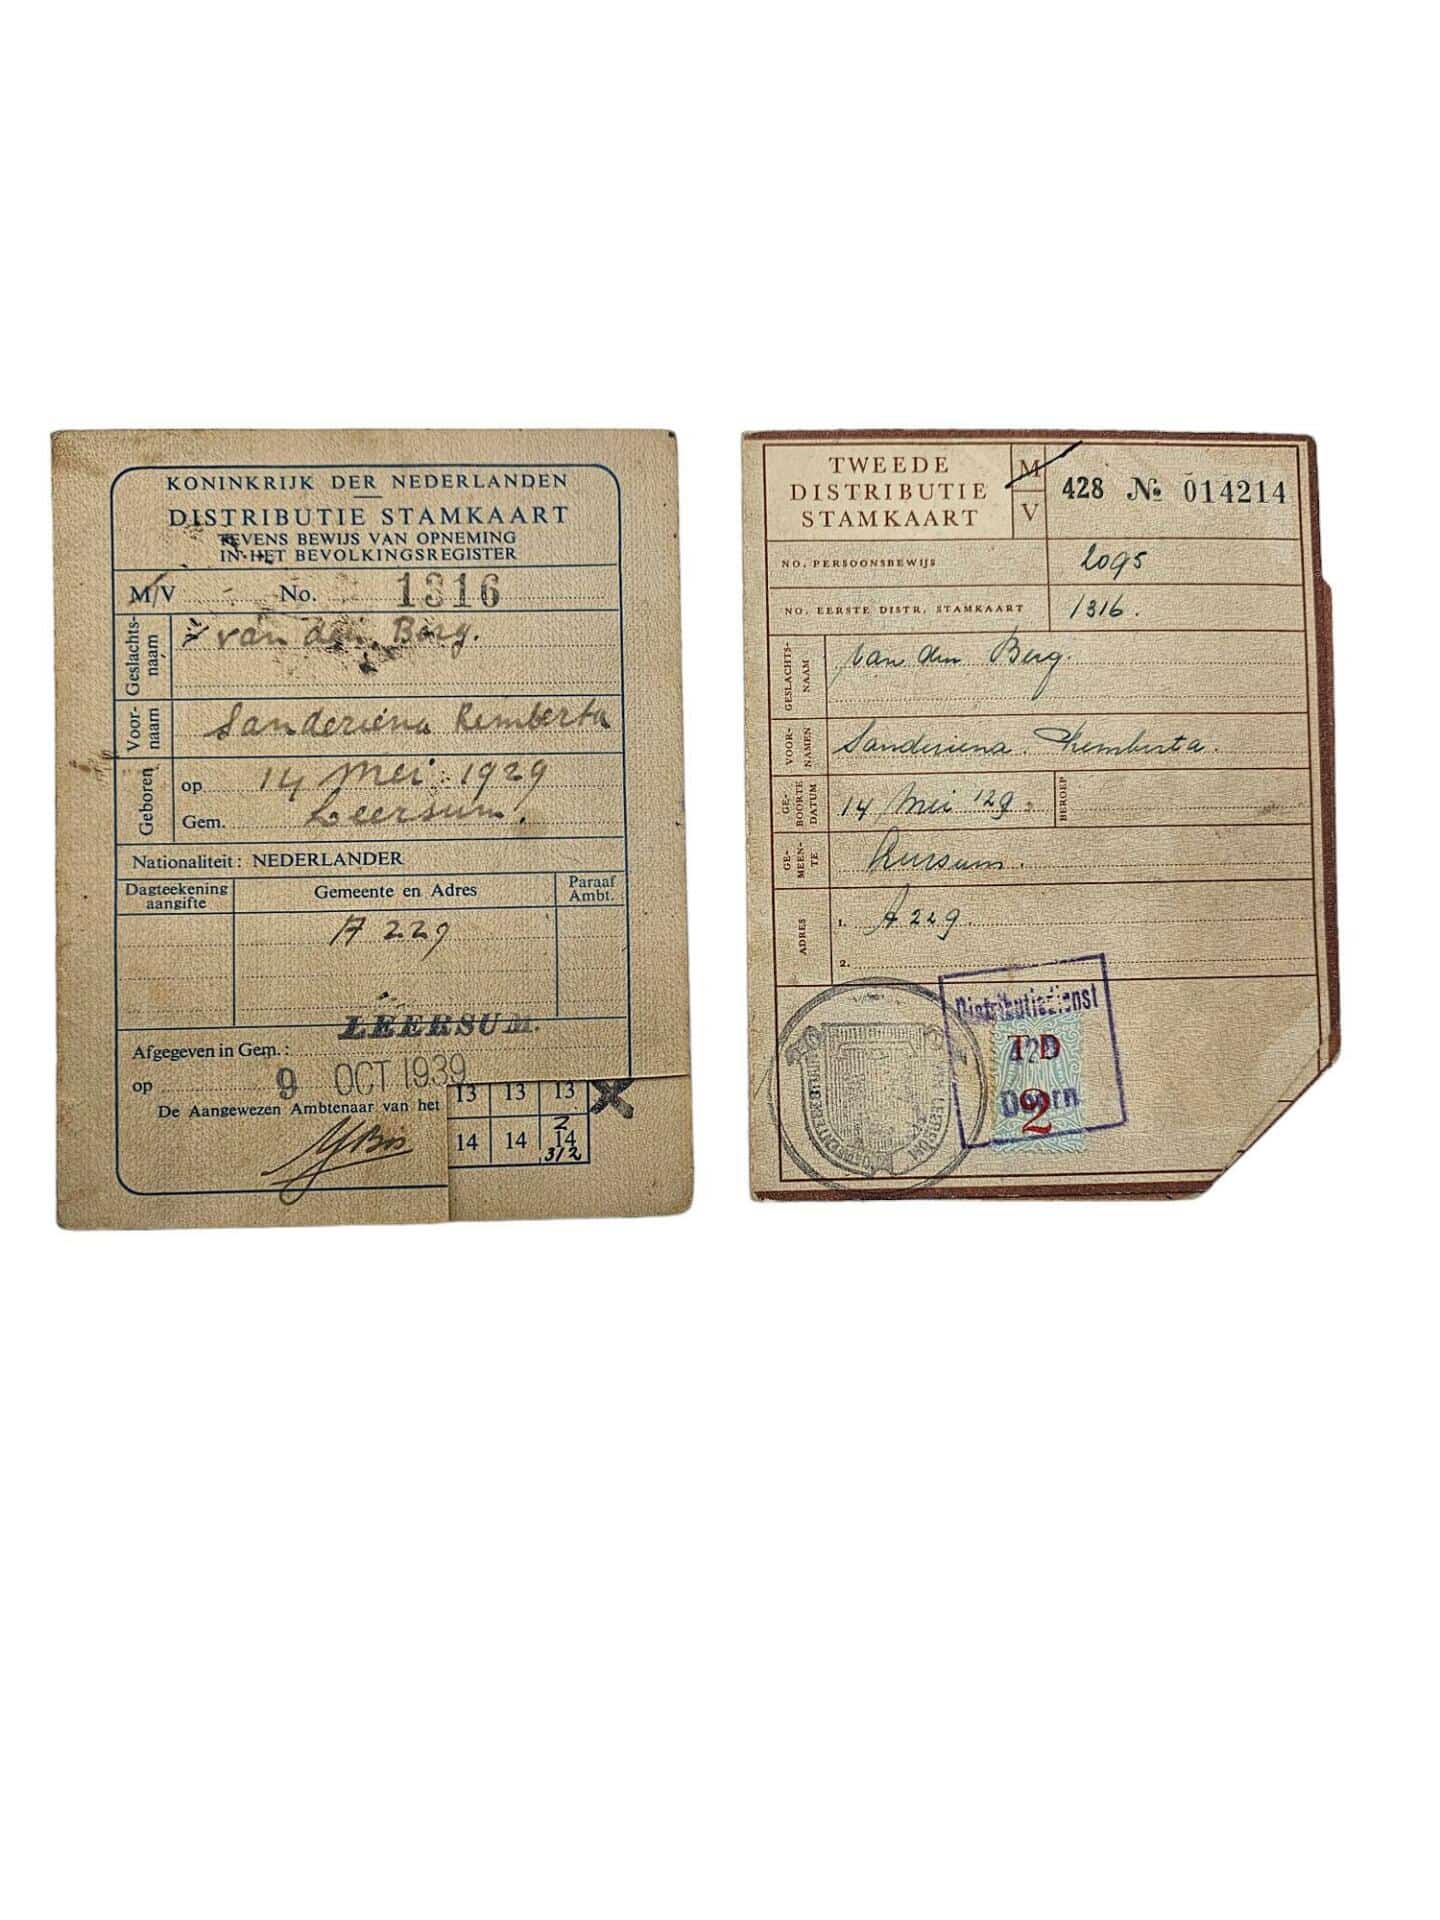 KONINKRIJK DER NEDERLANDEN
DISTRIBUTIE STAMKAART
TEVENS BEWIJS VAN OPNEMING
IN HET BEVOLKINGSREGISTER
M/V No. 1316
Geslachts-
naam
van den Berg.
Voor-
naam
Sanderiena Remberta
Geboren
op 14 Mei 1929
Gem. Leersum.
Nationaliteit: NEDERLANDER
Dagteekening
aangifte
Gemeente en Adres
Paraaf
Ambt.
A 229
LEERSUM.
Afgegeven in Gem.:
op 9 OCT 1939
De Aangewezen Ambtenaar van het
13 13 13
2
14 14 14
312
TWEEDE
DISTRIBUTIE
STAMKAART
M
V
428 No 014214
NO. PERSOONSBEWIJS 2095
NO. EERSTE DISTR. STAMKAART 1316.
GESLACHTS-
NAAM
van den Berg.
VOOR-
NAMEN
Sanderiena. Remberta.
GE-
BOORTE
DATUM
14 Mei '29.
BEROEP
GE-
MEEN-
TE
Leersum.
ADRES
1. A 229.
2.
Distributiedienst
428
Doorn
TD
2